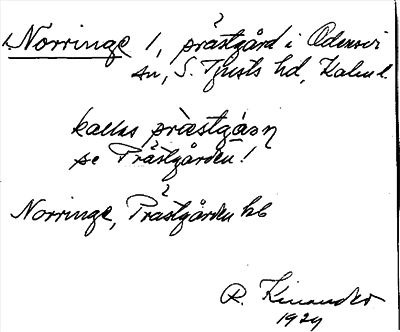 Norringe 1, prästgård i Odensvi
sn, S. Tjusts hd, Kalm l.
kallas prästgáʒn
se Prästgården!
Norringe, Prästgården kb
R. Kinander
1924